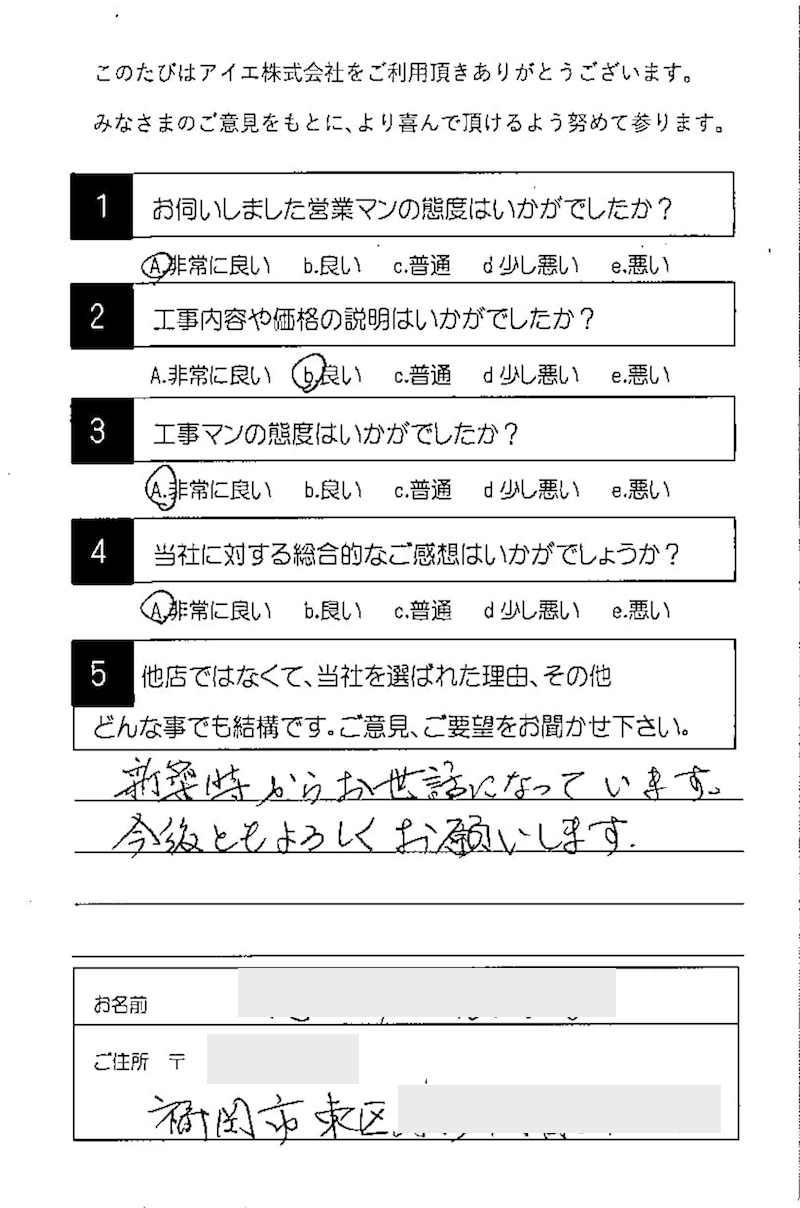 このたびはアイエ株式会社をご利用頂きありがとうございます。
みなさまのご意見をもとに、より喜んで頂けるよう努めて参ります。
1 お伺いしました営業マンの態度はいかがでしたか？
A.非常に良い b.良い c.普通 d 少し悪い e.悪い
2 工事内容や価格の説明はいかがでしたか？
A.非常に良い b.良い c.普通 d 少し悪い e.悪い
3 工事マンの態度はいかがでしたか？
A.非常に良い b.良い c.普通 d 少し悪い e.悪い
4 当社に対する総合的なご感想はいかがでしょうか？
A.非常に良い b.良い c.普通 d 少し悪い e.悪い
5 他店ではなくて、当社を選ばれた理由、その他
どんな事でも結構です。ご意見、ご要望をお聞かせ下さい。
新築時からお世話になっています。
今後ともよろしくお願いします.
お名前
ご住所 〒
福岡市東区